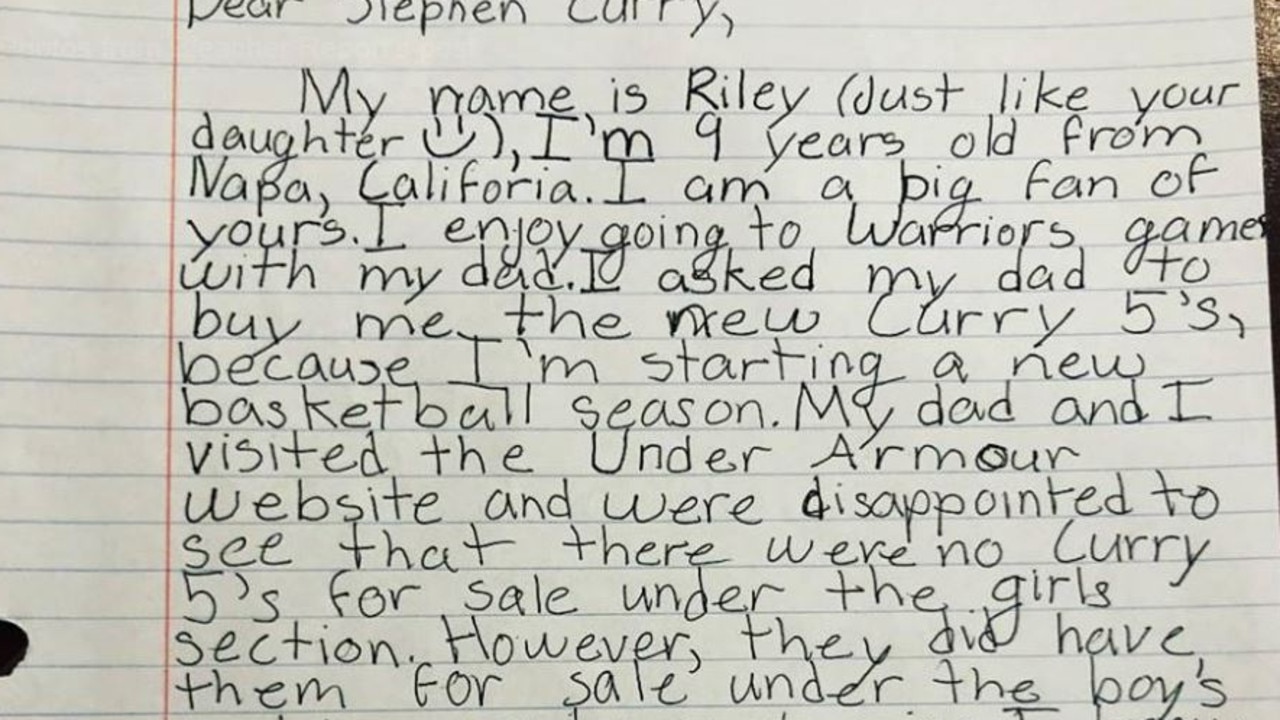 Dear Stephen Curry,
My name is Riley (Just like your
daughter :)), I'm 9 years old from
Napa, Califoria. I am a big fan of
yours. I enjoy going to Warriors games
with my dad. I asked my dad to
buy me the new Curry 5's,
because I'm starting a new
basketball season. My dad and I
visited the Under Armour
website and were disappointed to
see that there were no Curry
5's for sale under the girls
section. However, they did have
them for sale under the boy's